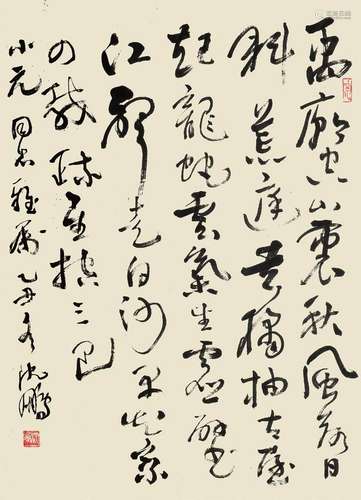 禹廟空山裏秋風落日
斜荒庭垂橘柚古屋
画龍蛇雲氣生虛壁
江聲走白沙早知乘
四載疏鑿控三巴
小元同志雅属乙丑冬沈鵬